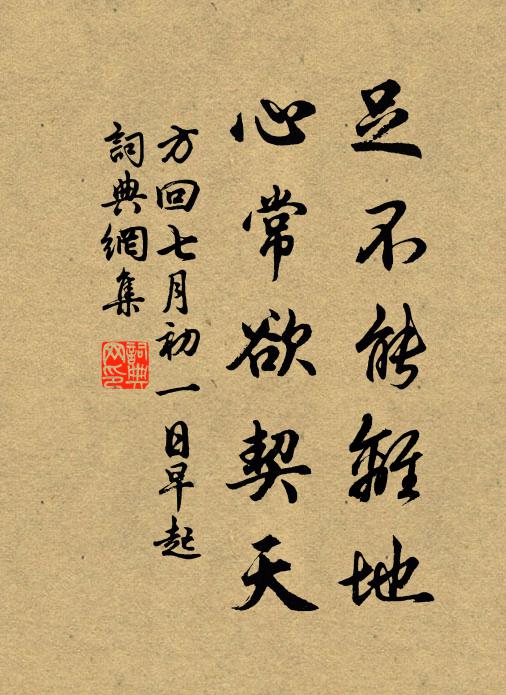 足不能離地
心常欲契天
方回七月初一日早起
詞典網集
詞典網印